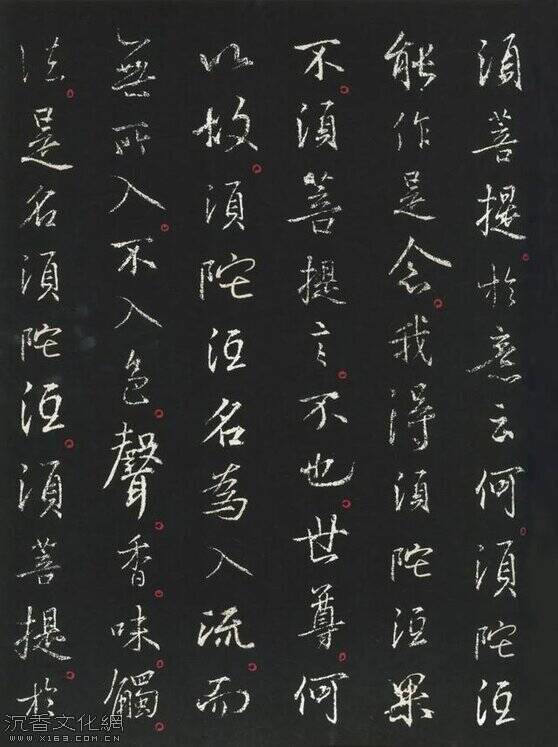 須菩提於意云何須陀洹
能作是念我得須陀洹果
不須菩提言不也世尊何
以故須陀洹名為入流而
無所入不入色聲香味觸
法是名須陀洹須菩提於
沉香文化網
www.x163.com.cn